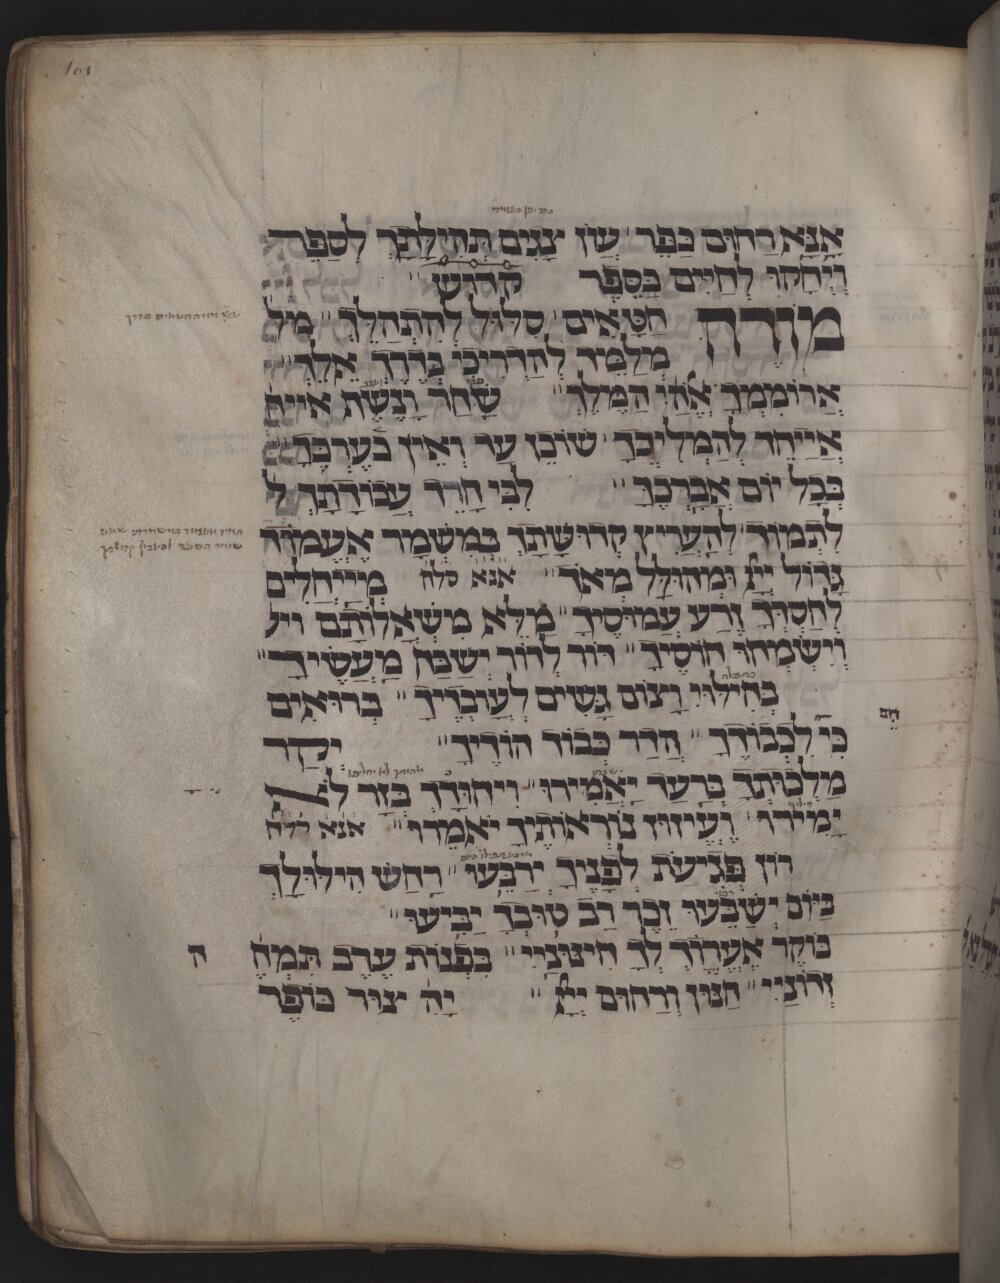 אָנָּא רַחוּם כַּפֵּר ׳ עֲוֹן צָגִים תְּהִילָּתָךְ לְסַפֵּר
וְיֻחָקוּ לְחַיִּים בְּסֵפֶר קדוש ״
מוֹרֶה חַטָּאִים ׳ סְלוֹל לְהִתְהַלֵּךְ ״ מל
מְלַמֵּד לְהַדְרִיכִי בְּדֶרֶךְ אֵלֵךְ ״
אֲרוֹמִמְךָ אֱלֹהַי הַמֶּלֶךְ ״ שַׁחַר וָנֶשֶׁף אייח
אֲיַיחֵד לְהַמְלִיכָךְ ׳ שׁוֹכֵן עַד וְאֵין בְּעֶרְכָּךְ ״
בְּכָל יוֹם אֲבָרְכֶךָּ ״ לִבִּי חָרֵד עֲבוֹדָתָךְ ל
לִתְמוֹךְ ׳ לְהַעֲרִיץ קְדוּשָּׁתָךְ בְּמִשְׁמָר אֶעֱמוֹד
גָּדוֹל יְיָ וּמְהוּלָּל מְאֹד ״ אנא סלח מְיַיחֲלִים
לְחַסְדְּךָ זֶרַע עֲמוּסֶיךָ ״ מַלֵּא מִשְׁאֲלוֹתָם ויע
וְיִשְׂמְחוּ חוֹסֶיךָ ״ דּוֹר לְדוֹר יְשַׁבַּח מַעֲשֶׂיךָ ״
בְּחִילּוּי וָצוֹם גָּשִׁים לְעוֹבְדֶיךָ ״ בְּרוּאִים
הֵם
כִּי לִכְבוֹדֶךָ ״ הֲדַר כְּבוֹד הוֹדֶיךָ ״ יְקַר
מַלְכוּתָךְ בְּרַעַד יַאֲמִירוּ ״ וְיִחוּדָךְ בְּזָר לֹא
יָמִירוּ ׳ וֶעֱיזוּז נוֹרְאוֹתֶיךָ יֹאמֵרוּ ״ אנא סלח
רוֹן פְּגִיעַת לְפָנֶיךָ יְרַבֵּעוּ ״ רַחַשׁ הִילּוּלָךְ
כַּיּוֹם יְשַׁבֵּעוּ זֵכֶר רַב טוּבְךָ יַבִּיעוּ ״
בּוֹקֶר אֶעֱרוֹךְ לְךָ חִינּוּנָיי ״ בִּפְנוֹת עֶרֶב תִּמְחֶה
זְדוֹנָיי ״ חַנּוּן וְרַחוּם יְיָ ״ יָהּ צוּר כּוֹפֶר